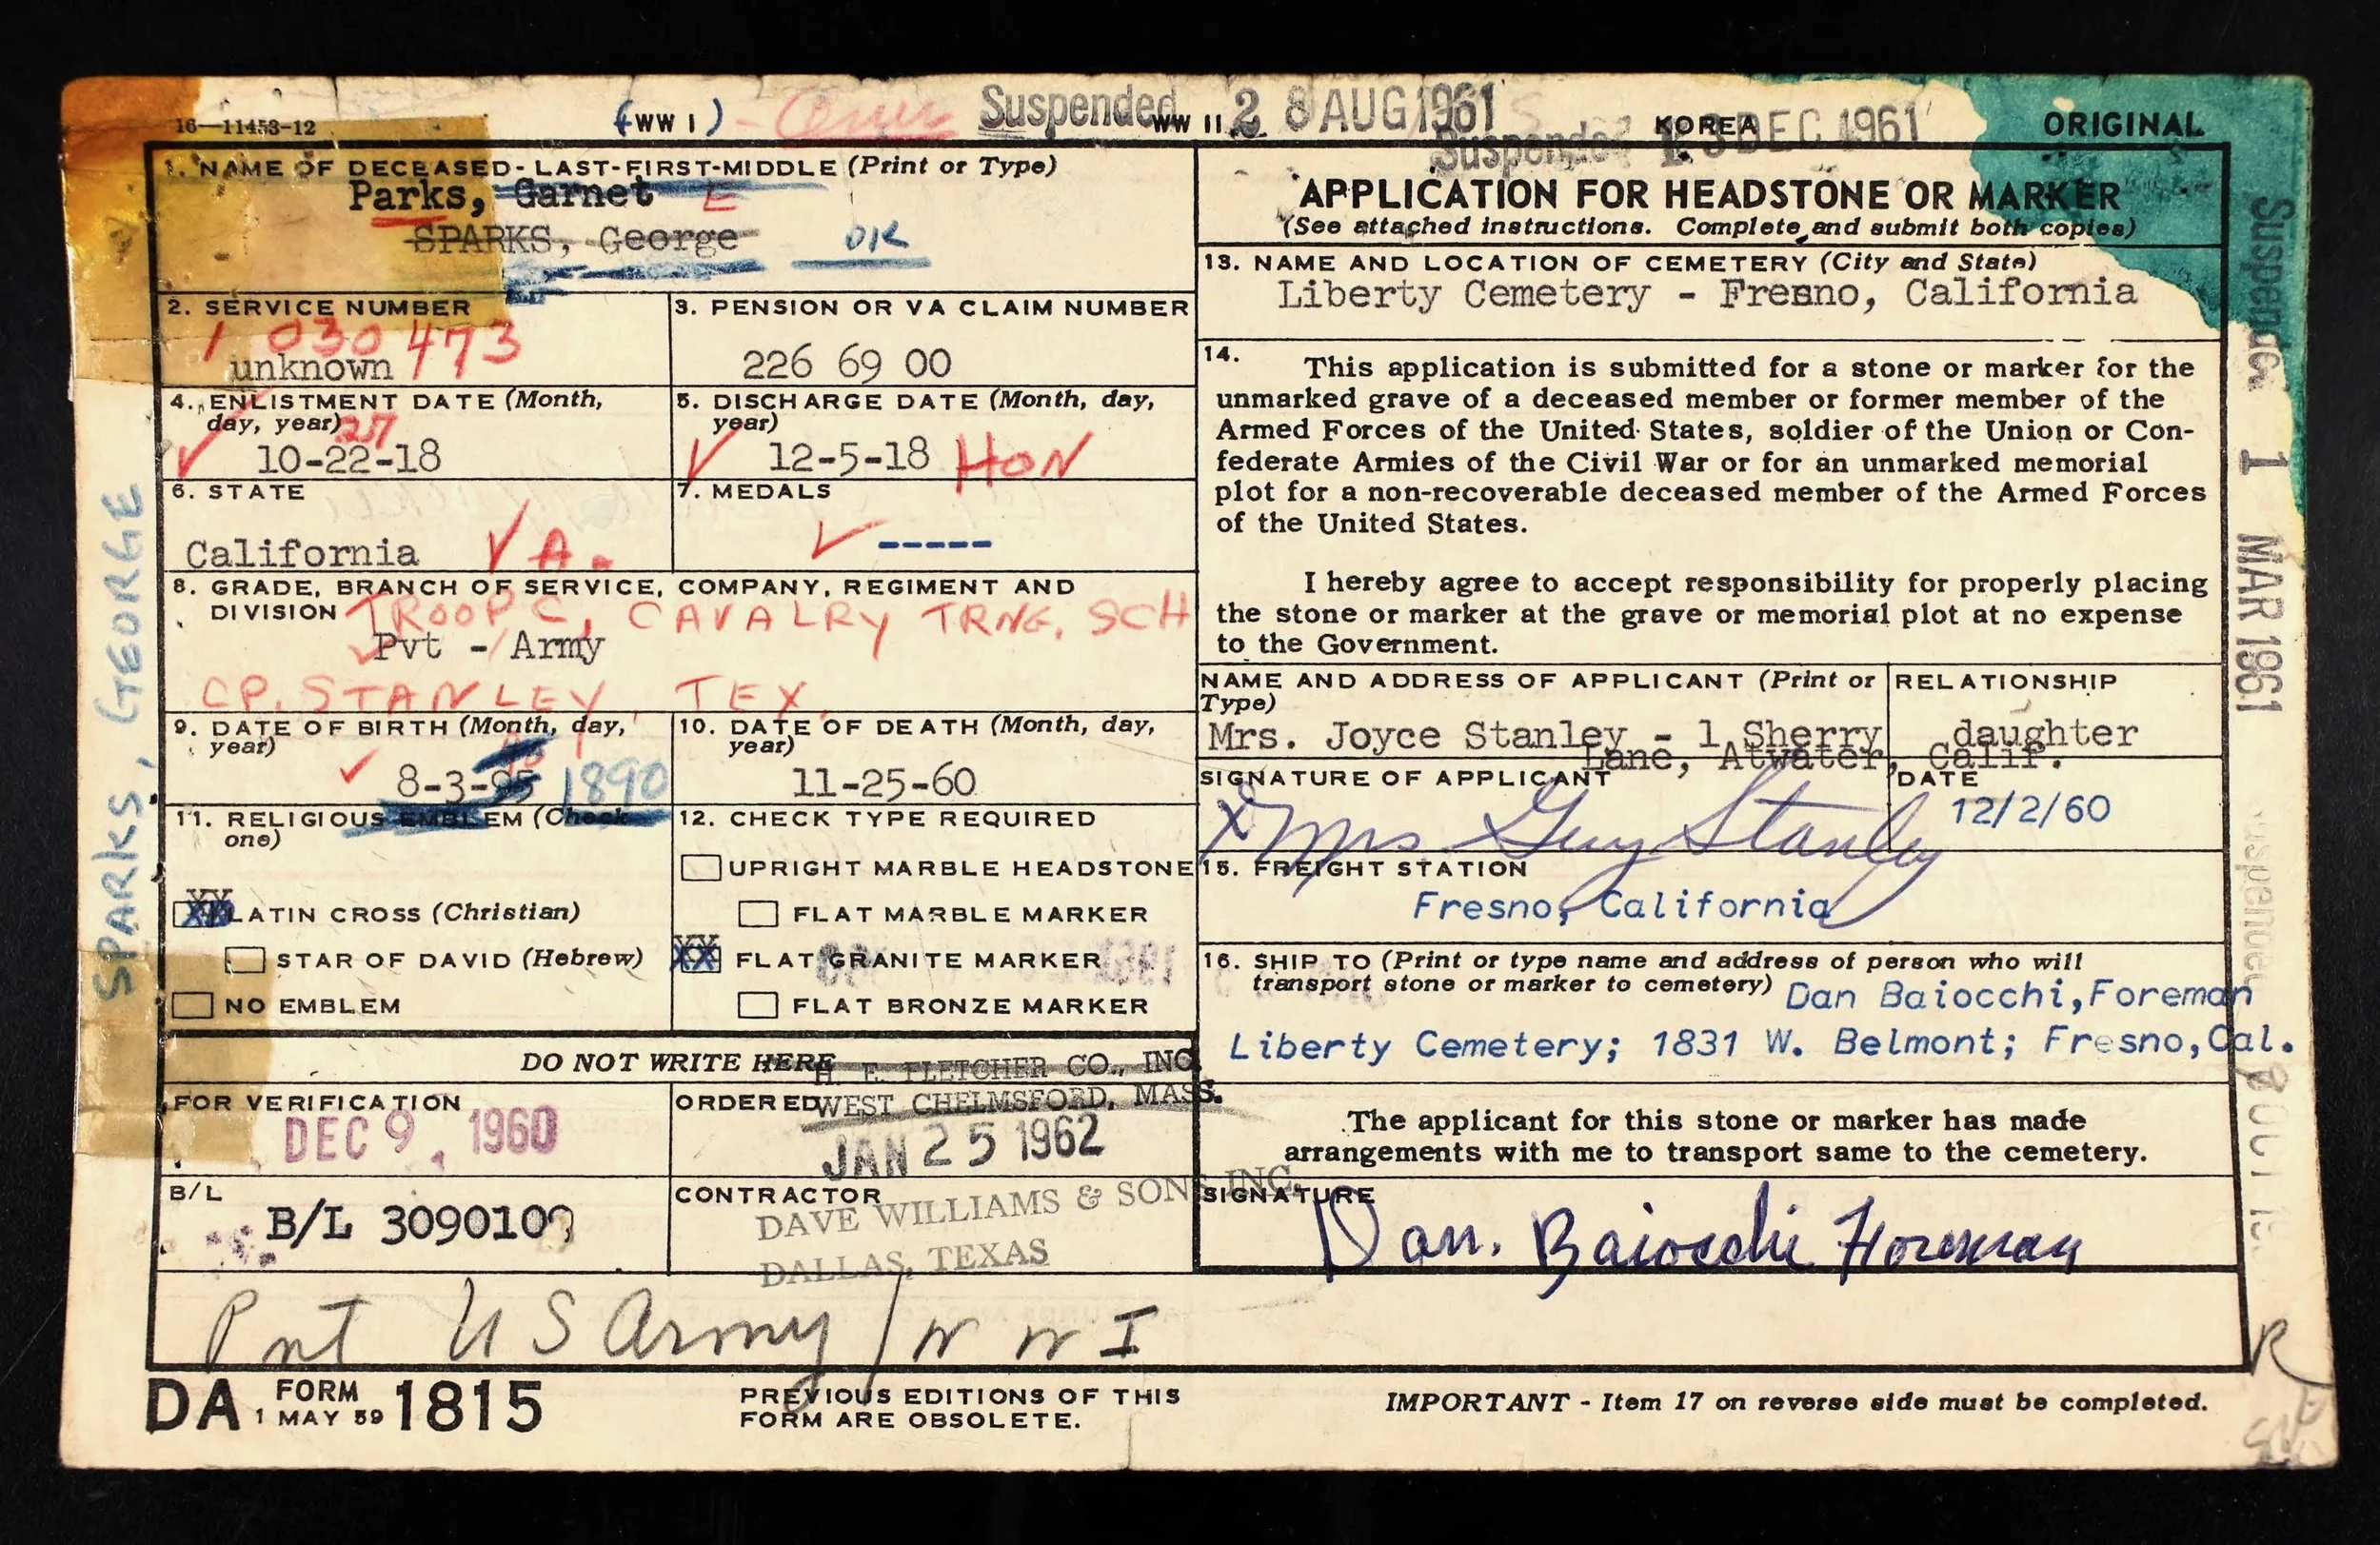 16—11453-12
(WW I)
Suspended
WW II
28 AUG 1961
Suspended
KOREA
13 DEC 1961
ORIGINAL
1. NAME OF DECEASED - LAST-FIRST-MIDDLE (Print or Type)
Parks, Garnet E
SPARKS, George OK
2. SERVICE NUMBER
1 030 473
unknown
3. PENSION OR VA CLAIM NUMBER
226 69 00
4. ENLISTMENT DATE (Month, day, year)
27
10-22-18
5. DISCHARGE DATE (Month, day, year)
12-5-18 HON
6. STATE
California VA.
7. MEDALS
-----
8. GRADE, BRANCH OF SERVICE, COMPANY, REGIMENT AND
DIVISION TROOP C, CAVALRY TRNG. SCH
Pvt - Army
CP. STANLEY, TEX.
9. DATE OF BIRTH (Month, day, year)
8-3-95 1890
10. DATE OF DEATH (Month, day, year)
11-25-60
11. RELIGIOUS EMBLEM (Check one)
XX LATIN CROSS (Christian)
STAR OF DAVID (Hebrew)
NO EMBLEM
12. CHECK TYPE REQUIRED
UPRIGHT MARBLE HEADSTONE
FLAT MARBLE MARKER
XX FLAT GRANITE MARKER
FLAT BRONZE MARKER
DO NOT WRITE HERE
H. E. FLETCHER CO., INC.
WEST CHELMSFORD, MASS.
FOR VERIFICATION
DEC 9, 1960
ORDERED
JAN 25 1962
B/L
B/L 3090109
CONTRACTOR
DAVE WILLIAMS & SONS INC.
DALLAS, TEXAS
Pvt US Army / W W I
APPLICATION FOR HEADSTONE OR MARKER
(See attached instructions. Complete and submit both copies)
13. NAME AND LOCATION OF CEMETERY (City and State)
Liberty Cemetery - Fresno, California
14. This application is submitted for a stone or marker for the
unmarked grave of a deceased member or former member of the
Armed Forces of the United States, soldier of the Union or Con-
federate Armies of the Civil War or for an unmarked memorial
plot for a non-recoverable deceased member of the Armed Forces
of the United States.
I hereby agree to accept responsibility for properly placing
the stone or marker at the grave or memorial plot at no expense
to the Government.
NAME AND ADDRESS OF APPLICANT (Print or Type)
Mrs. Joyce Stanley - 1 Sherry
Lane, Atwater, Calif.
RELATIONSHIP
daughter
SIGNATURE OF APPLICANT
X Mrs Guy Stanley
DATE
12/2/60
15. FREIGHT STATION
Fresno, California
16. SHIP TO (Print or type name and address of person who will
transport stone or marker to cemetery) Dan Baiocchi, Foreman
Liberty Cemetery; 1831 W. Belmont; Fresno, Cal.
The applicant for this stone or marker has made
arrangements with me to transport same to the cemetery.
SIGNATURE
Dan. Baiocchi Foreman
DA FORM 1815
1 MAY 59
PREVIOUS EDITIONS OF THIS
FORM ARE OBSOLETE.
IMPORTANT - Item 17 on reverse side must be completed.
SPARKS, GEORGE
Suspended 1 MAR 1961
Suspended
R